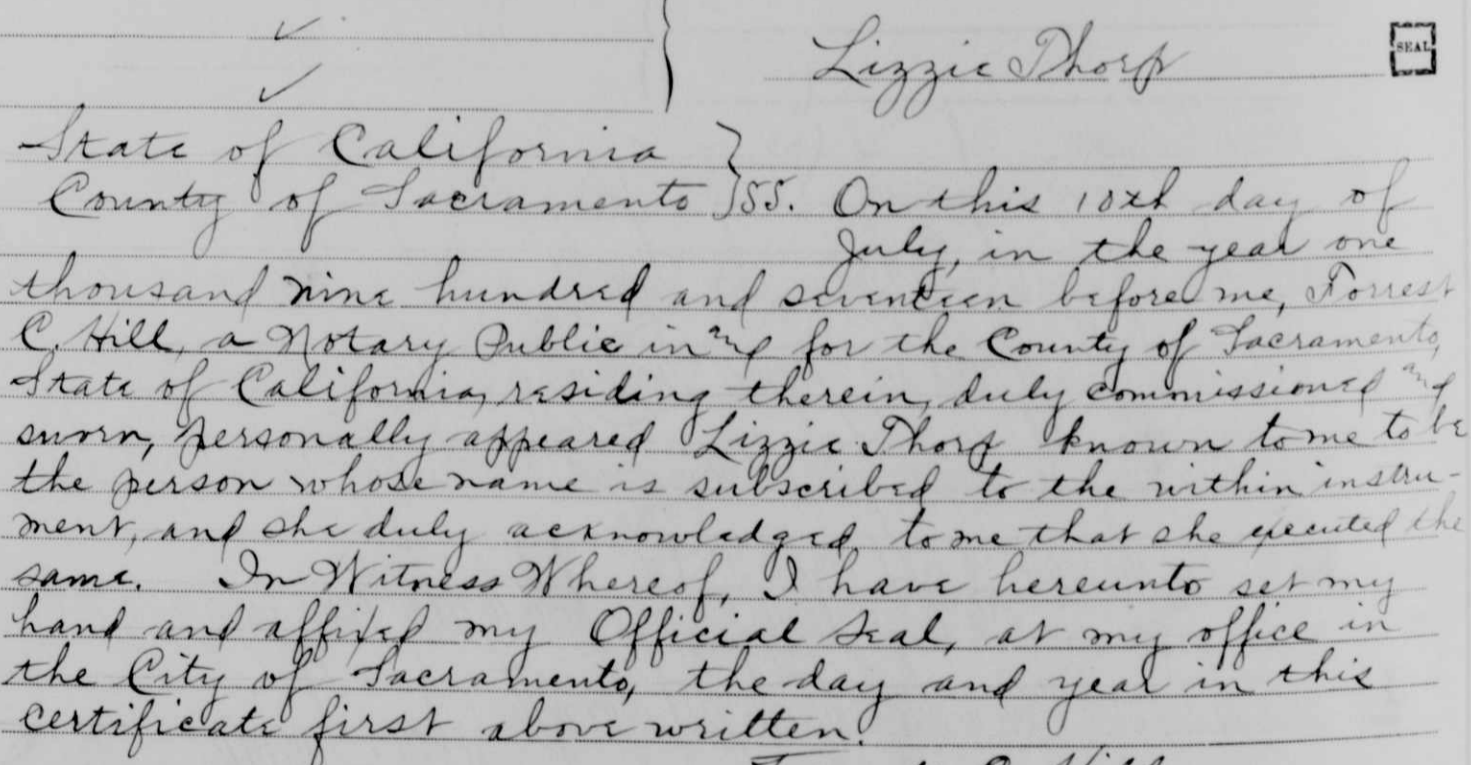 Lizzie Thorp
SEAL
State of California
County of Sacramento } SS. On this 10th day of
July, in the year one
thousand nine hundred and seventeen before me, Forrest
C. Hill, a Notary Public in and for the County of Sacramento,
State of California, residing therein, duly commissioned and
sworn, personally appeared Lizzie Thorp known to me to be
the person whose name is subscribed to the within instru-
ment, and she duly acknowledged to me that she executed the
same. In Witness Whereof, I have hereunto set my
hand and affixed my Official Seal, at my office in
the City of Sacramento, the day and year in this
certificate first above written.